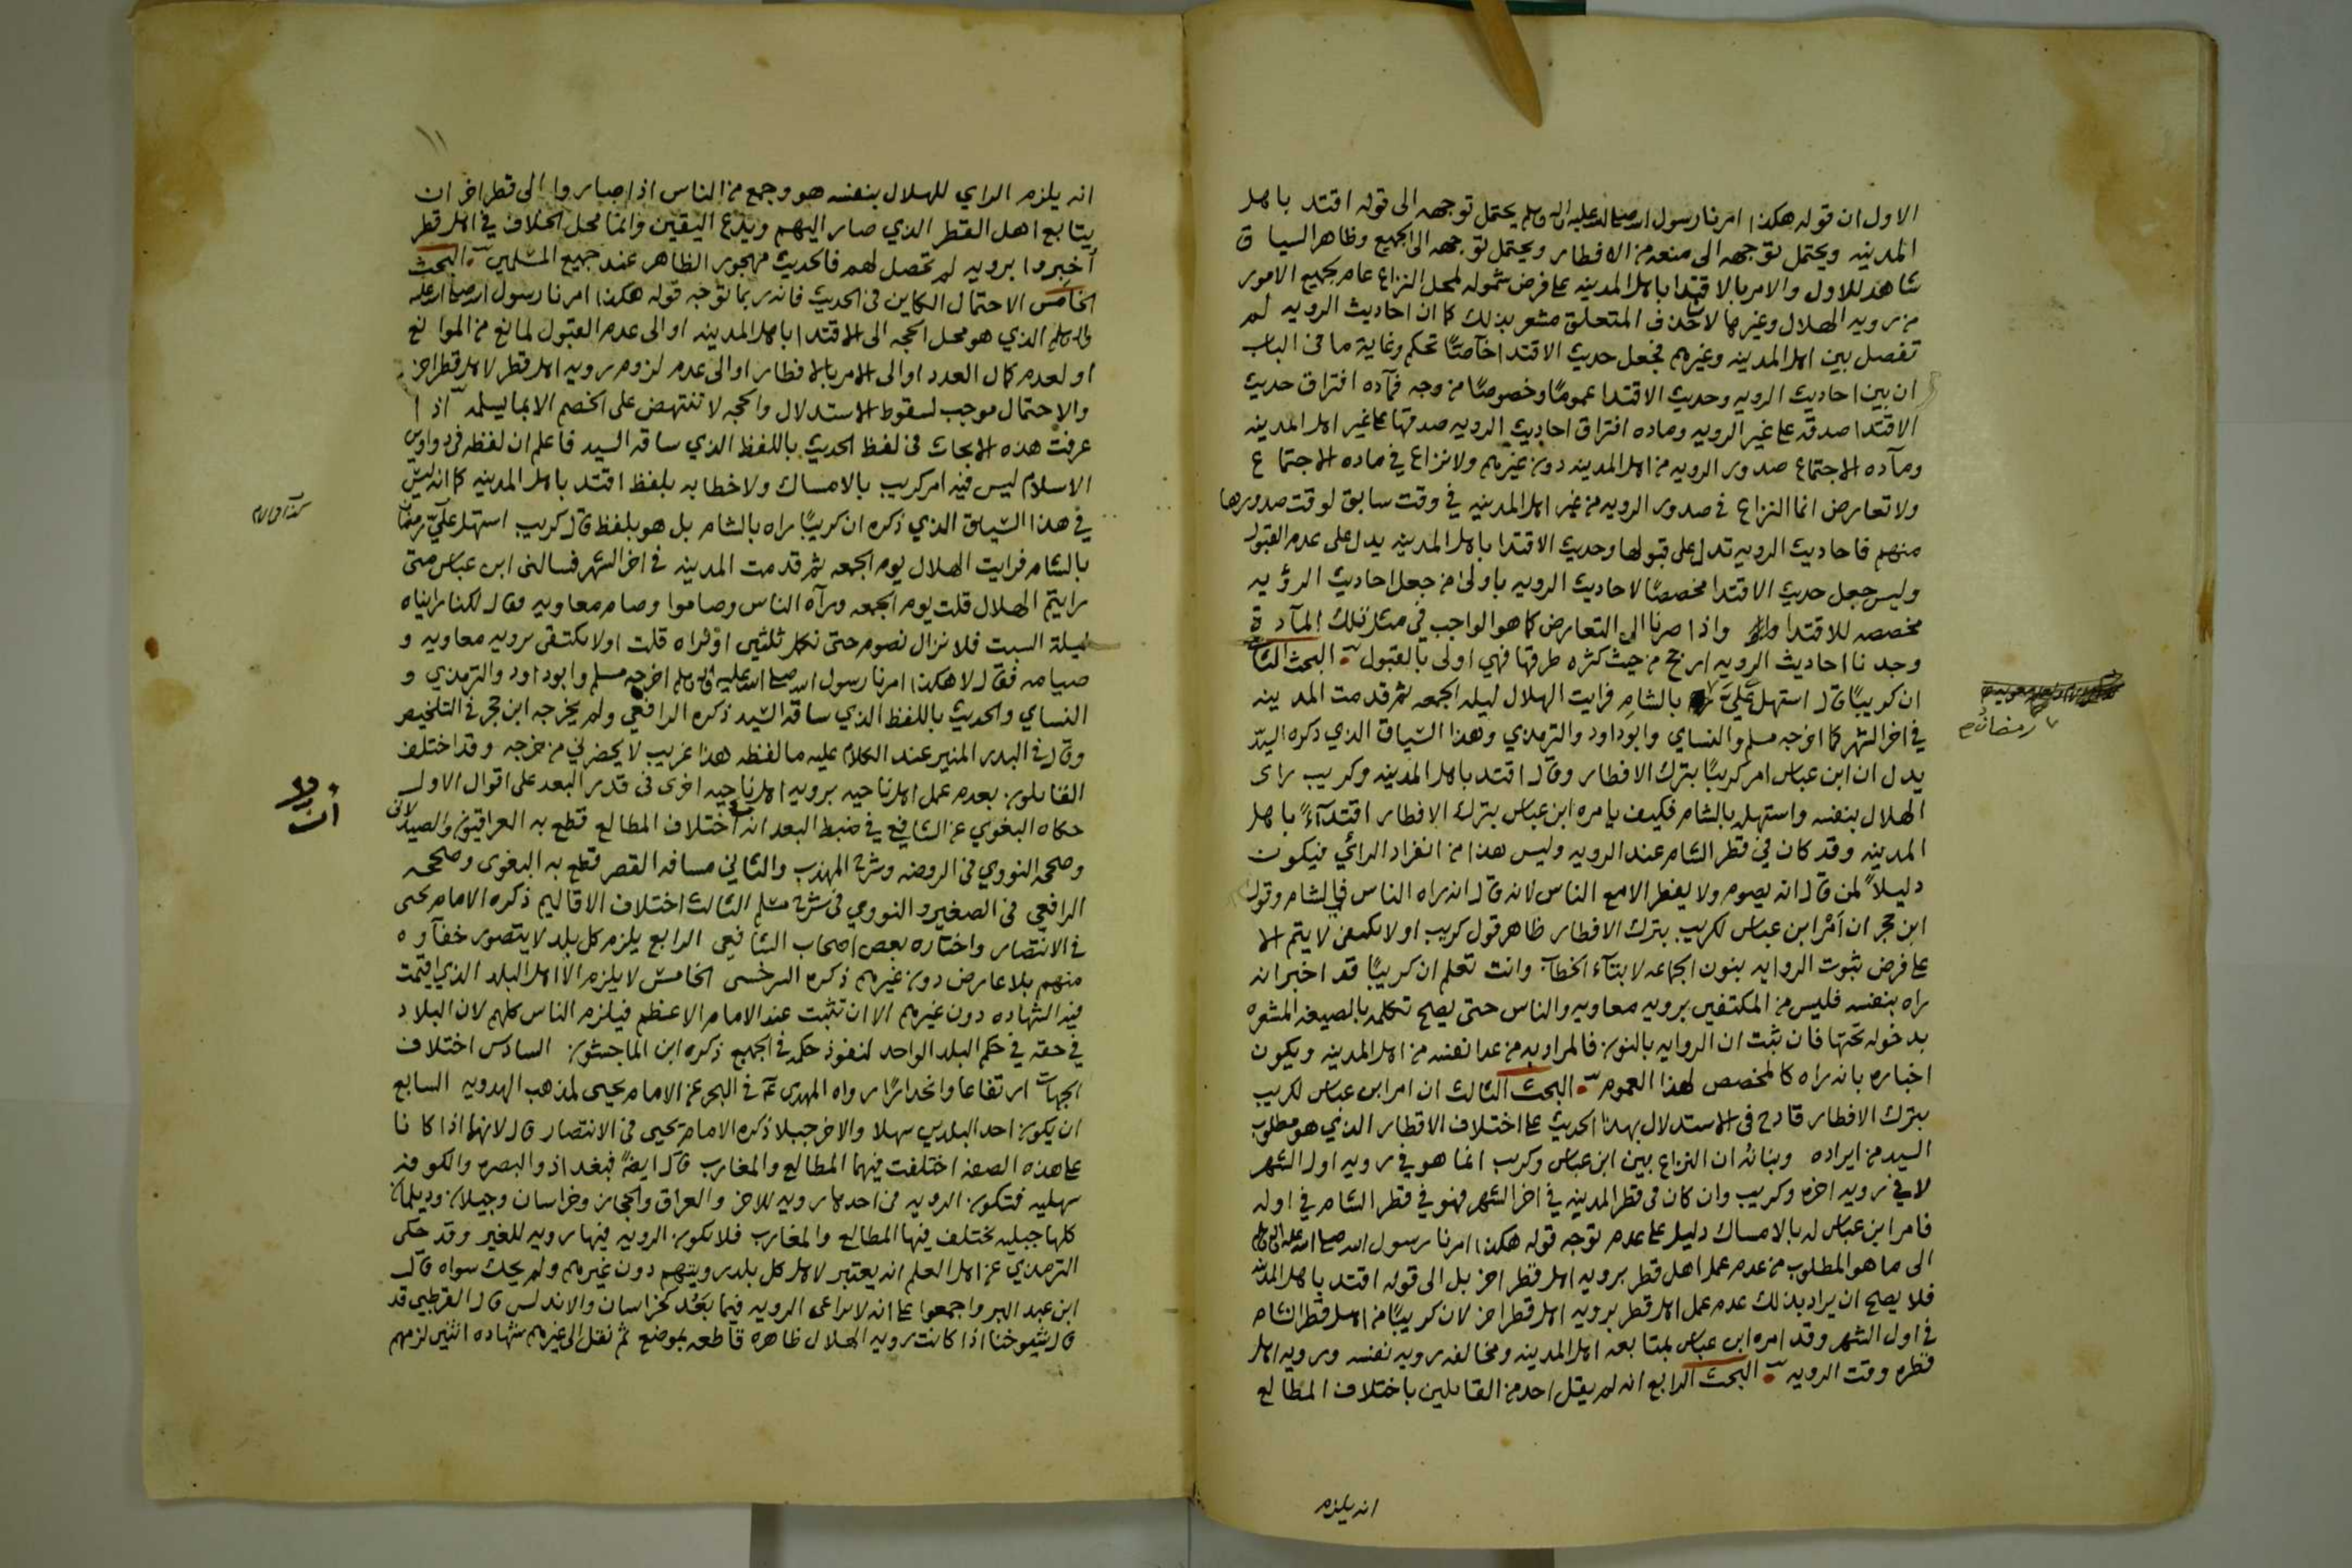 الاول ان قوله هكذا امرنا رسول الله صلى الله عليه واله وسلم يحتمل توجهه الى قوله اقتد باهل
المدينه ويحتمل توجهه الى منعه من الافطار ويحتمل توجهه الى الجميع وظاهر السياق
شاهد للاول والامر بالاقتدا باهل المدينه على فرض شموله لمحل النزاع عام لجميع الامور
من رويه الهلال وغيرها لان حذف المتعلق مشعر بذلك كما ان احاديث الرويه لم
تفصل بين اهل المدينه وغيرهم فجعل حديث الاقتدا خآصًّا تحكم وغاية ما في الباب
ان بين احاديث الرويه وحديث الاقتدا عمومًا وخصوصًا من وجه فمآده افتراق حديث
الاقتدا صدقه على غير الرويه وماده افتراق احاديث الرويه صدقها على غير اهل المدينه
ومآده الاجتماع صدور الرويه من اهل المدينه دون غيرهم ولا نزاع في ماده الاجتماع
ولا تعارض انما النزاع في صدور الرويه من غير اهل المدينه في وقت سابق لوقت صدورها
منهم فاحاديث الرويه تدل على قبولها وحديث الاقتدا باهل المدينه يدل على عدم القبول
وليس جعل حديث الاقتدا مخصصًا لاحاديث الرويه باولى من جعل احاديث الرؤيه
مخصصه للاقتدا واذا صرنا الى التعارض كما هو الواجب في مثل تلك المآدة
وجدنا احاديث الرويه ارجح من حيث كثره طرقها فهي اولى بالقبول البحث الثاني
ان كريبًا قال استهل عَلَيَّ بالشام فرايت الهلال ليله الجمعه ثم قدمت المدينه
رمضان صح
في اخر الشهر كما اخرجه مسلم والنساي وابو داود والترمذي وهذا السياق الذي ذكره السيد
يدل ان ابن عباس امر كريبًا بترك الافطار وقال اقتد باهل المدينه وكريب راى
الهلال بنفسه واستهله بالشام فكيف يامره ابن عباس بترك الافطار اقتدآءً باهل
المدينه وقد كان في قطر الشام عند الرويه وليس هذا من انفراد الرائي فيكون
دليلاً لمن قال انه يصوم ولا يفطر الا مع الناس لانه قال انه راه الناس في الشام وقول
ابن حجر ان أمْر ابن عباس لكريب بترك الافطار ظاهر قول كريب اولا نكتفي لا يتم الا
على فرض ثبوت الروايه بنون الجماعه لا بتآء الخطاب وانت تعلم ان كريبًا قد اخبر انه
راه بنفسه فليس من المكتفين برويه معاويه والناس حتى يصح تكلمه بالصيغه المشعره
بدخوله تحتها فان ثبت ان الروايه بالنون فالمراد به من عدا نفسه من اهل المدينه ويكون
اخباره بانه راه كالمخصص لهذا العموم البحث الثالث ان امر ابن عباس لكريب
بترك الافطار قادح في الاستدلال بهذا الحديث على اختلاف الاقطار الذي هو مطلوب
السيد من ايراده وبيانه ان النزاع بين ابن عباس وكريب انما هو في رويه اول الشهر
لا في رويه اخره وكريب وان كان في قطر المدينه في اخر الشهر فهو في قطر الشام في اوله
فامر ابن عباس له بالامساك دليل على عدم توجه قوله هكذا امرنا رسول الله صلى الله عليه واله وسلم
الى ما هو المطلوب من عدم عمل اهل قطر برويه اهل قطر اخر بل الى قوله اقتد باهل المدينه
فلا يصح ان يراد بذلك عدم عمل اهل قطر برويه اهل قطر اخر لان كريبًا من اهل قطر الشام
في اول الشهر وقد امره ابن عباس بمتابعه اهل المدينه ومخالفه رويه نفسه ورويه اهل
قطره وقت الرويه البحث الرابع انه لم يقل احد من القايلين باختلاف المطالع
انه يلزم
١١
انه يلزم الراي للهلال بنفسه هو وجمع من الناس اذا صاروا الى قطر اخر ان
يتابع اهل القطر الذي صار اليهم ويدع اليقين وانما محل الخلاف في اهل قطر
أخبروا برويه لم تحصل لهم فالحديث مهجور الظاهر عند جميع المسلمين البحث
الخامس الاحتمال الكاين في الحديث فانه ربما توجه قوله هكذا امرنا رسول الله صلى الله عليه
واله وسلم الذي هو محل الحجه الى الاقتدا باهل المدينه او الى عدم القبول لمانع من الموانع
او لعدم كمال العدد او الى الامر بالافطار او الى عدم لزوم رويه اهل قطر لاهل قطر اخر
والاحتمال موجب لسقوط الاستدلال والحجه لا تنتهض على الخصم الا بما يسلمه اذا
عرفت هذه الابحاث في لفظ الحديث باللفظ الذي ساقه السيد فاعلم ان لفظه في دواوين
الاسلام ليس فيه امر كريب بالامساك ولا خطابه بلفظ اقتد باهل المدينه كما انه ليس
في هذا السياق الذي ذكره ان كريبًا راه بالشام بل هو بلفظ قال كريب استهل عَلَيَّ رمضان
بالشام فرايت الهلال يوم الجمعه ثم قدمت المدينه في اخر الشهر فسالني ابن عباس متى
رايتم الهلال قلت يوم الجمعه ورآه الناس وصاموا وصام معاويه فقال لكنا رايناه
ليلة السبت فلا نزال نصوم حتى نكمل ثلثين او نراه قلت اولا نكتفي برويه معاويه و
صيامه فقال لا هكذا امرنا رسول الله صلى الله عليه واله وسلم اخرجه مسلم وابو داود والترمذي و
النساي والحديث باللفظ الذي ساقه السيد ذكره الرافعي ولم يخرجه ابن حجر في التلخيص
وقال في البدر المنير عند الكلام عليه ما لفظه هذا غريب لا يحضرني من خرجه وقد اختلف
القايلون بعدم عمل اهل ناحيه برويه اهل ناحيه اخرى في قدر البعد على اقوال الاول
حكاه البغوي عن الشافعي في ضبط البعد انه اختلاف المطالع قطع به العراقيون والصيدلاني
وصححه النووي في الروضه وشرح المهذب والثاني مسافه القصر قطع به البغوى وصححه
الرافعي في الصغير والنووي في شرح مسلم الثالث اختلاف الاقاليم ذكره الامام يحيى
في الانتصار واختاره بعض اصحاب الشافعي الرابع يلزم كل بلد لا يتصور خفآوه
منهم بلا عارض دون غيرهم ذكره السرخسي الخامس لا يلزم الا اهل البلد الذي اقيمت
فيه الشهاده دون غيرهم الا ان تثبت عند الامام الاعظم فيلزم الناس كلهم لان البلاد
في حقه في حكم البلد الواحد لنفوذ حكمه في الجميع ذكره ابن الماجشون السادس اختلاف
الجهات ارتفاعا وانحدارًا رواه المهدى في البحر عن الامام يحيى لمذهب الهدويه السابع
ان يكون احد البلدين سهلا والاخر جبلا ذكره الامام يحيى في الانتصار قال لانهما اذا كانا
على هذه الصفه اختلفت فيهما المطالع والمغارب قال ايضًا فبغداذ والبصره والكوفه
سهليه فتكون الرويه في احدها رويه للاخر والعراق والحجاز وخراسان وجيلان وديلمان
كلها جبليه تختلف فيها المطالع والمغارب فلا تكون الرويه فيها رويه للغير وقد حكى
الترمذي عن اهل العلم انه يعتبر لاهل كل بلد رويتهم دون غيرهم ولم يحك سواه قال
ابن عبد البر واجمعوا على انه لا تراعى الرويه فيما بَعُد كخراسان والاندلس قال القرطبي قد
قال شيوخنا اذا كانت رويه الهلال ظاهره قاطعه بموضع ثم نقل الى غيرهم بشهاده اثنين لزمهم